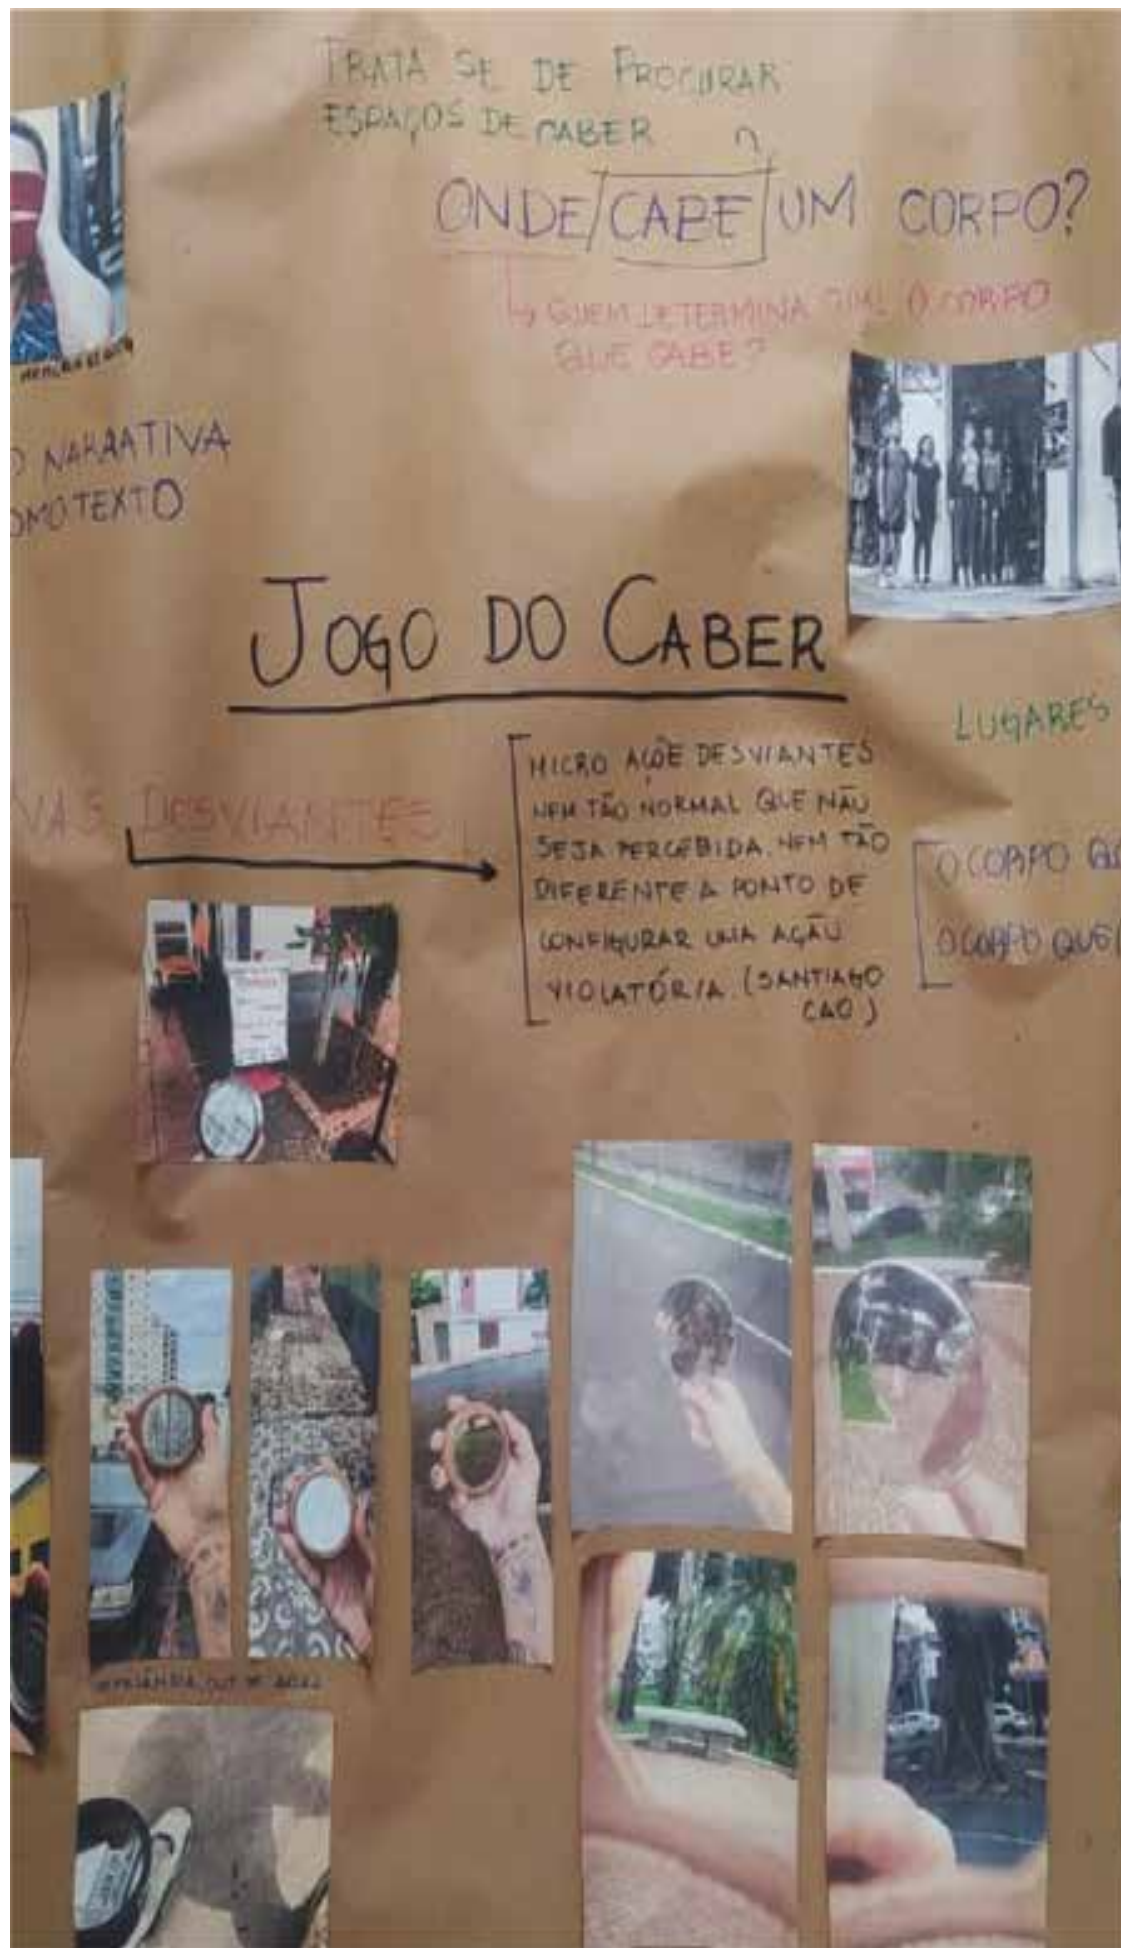 TRATA SE DE PROCURAR
ESPAÇOS DE CABER
ONDE/CABE/UM CORPO?
↳ QUEM DETERMINA QUAL O CORPO
QUE CABE?
NARRATIVA
OMO TEXTO
JOGO DO CABER
LUGARES
VAS DESVIANTES
MICRO AÇÕE DESVIANTES
NEM TÃO NORMAL QUE NÃO
SEJA PERCEBIDA. NEM TÃO
DIFERENTE A PONTO DE
CONFIGURAR UMA AÇÃO
VIOLATÓRIA. (SANTIAGO
CAO)
O CORPO QU
O CORPO QUE
OUT DE 2022